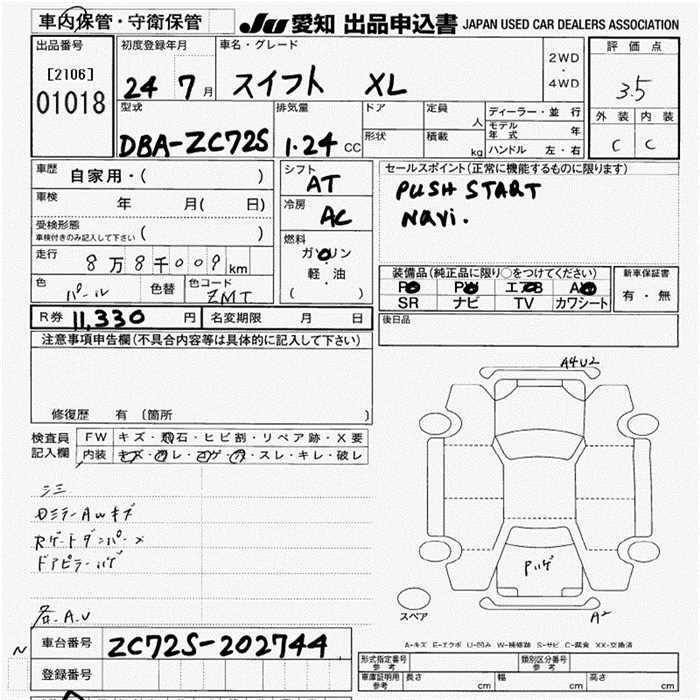 車内保管・守衛保管
JU 愛知 出品申込書 JAPAN USED CAR DEALERS ASSOCIATION
出品番号
[2106]
01018
初度登録年月
24 7 月
車名・グレード
スイフト XL
2WD
・
4WD
評価点
3.5
外装 内装
C C
型式
DBA-ZC72S
排気量
1.24 CC
ドア
定員
人
形状
積載
kg
ディーラー・並行
モデル年式 年
ハンドル 左・右
車歴
自家用・( )
車検
年 月( 日)
受検形態
車検付きのみ記入して下さい ( )
走行
8万8千009 km
色
パール
色替
色コード
ZMT
シフト
AT
冷房
AC
燃料
ガソリン
軽・油
( )
セールスポイント(正常に機能するものに限ります)
PUSH START
Navi.
装備品(純正品に限り○をつけてください)
PS PW エアB AW
SR ナビ TV カワシート
新車保証書
有・無
R券 11,330 円
名変期限 月 日
後日品
注意事項申告欄(不具合内容等は具体的に記入して下さい)
修復歴 有 〔箇所 〕
検査員
記入欄
FW キズ・飛石・ヒビ割・リペア跡・X要
内装 キズ・ヨゴレ・コゲ・穴・スレ・キレ・破レ
シミ
ロミラーAwキズ
Rゲートダンパー×
ドアピラーハゲ
各A.U
A4U2
Pハゲ
A2
スペア
N
A-キズ E-エクボ U-凹み W-補修跡 S-サビ C-腐食 XX-交換済
車台番号
ZC72S-202744
登録番号
形式指定番号
参考
類別区分番号
参考
車庫証明用
参考
長さ cm
幅 cm
高さ cm